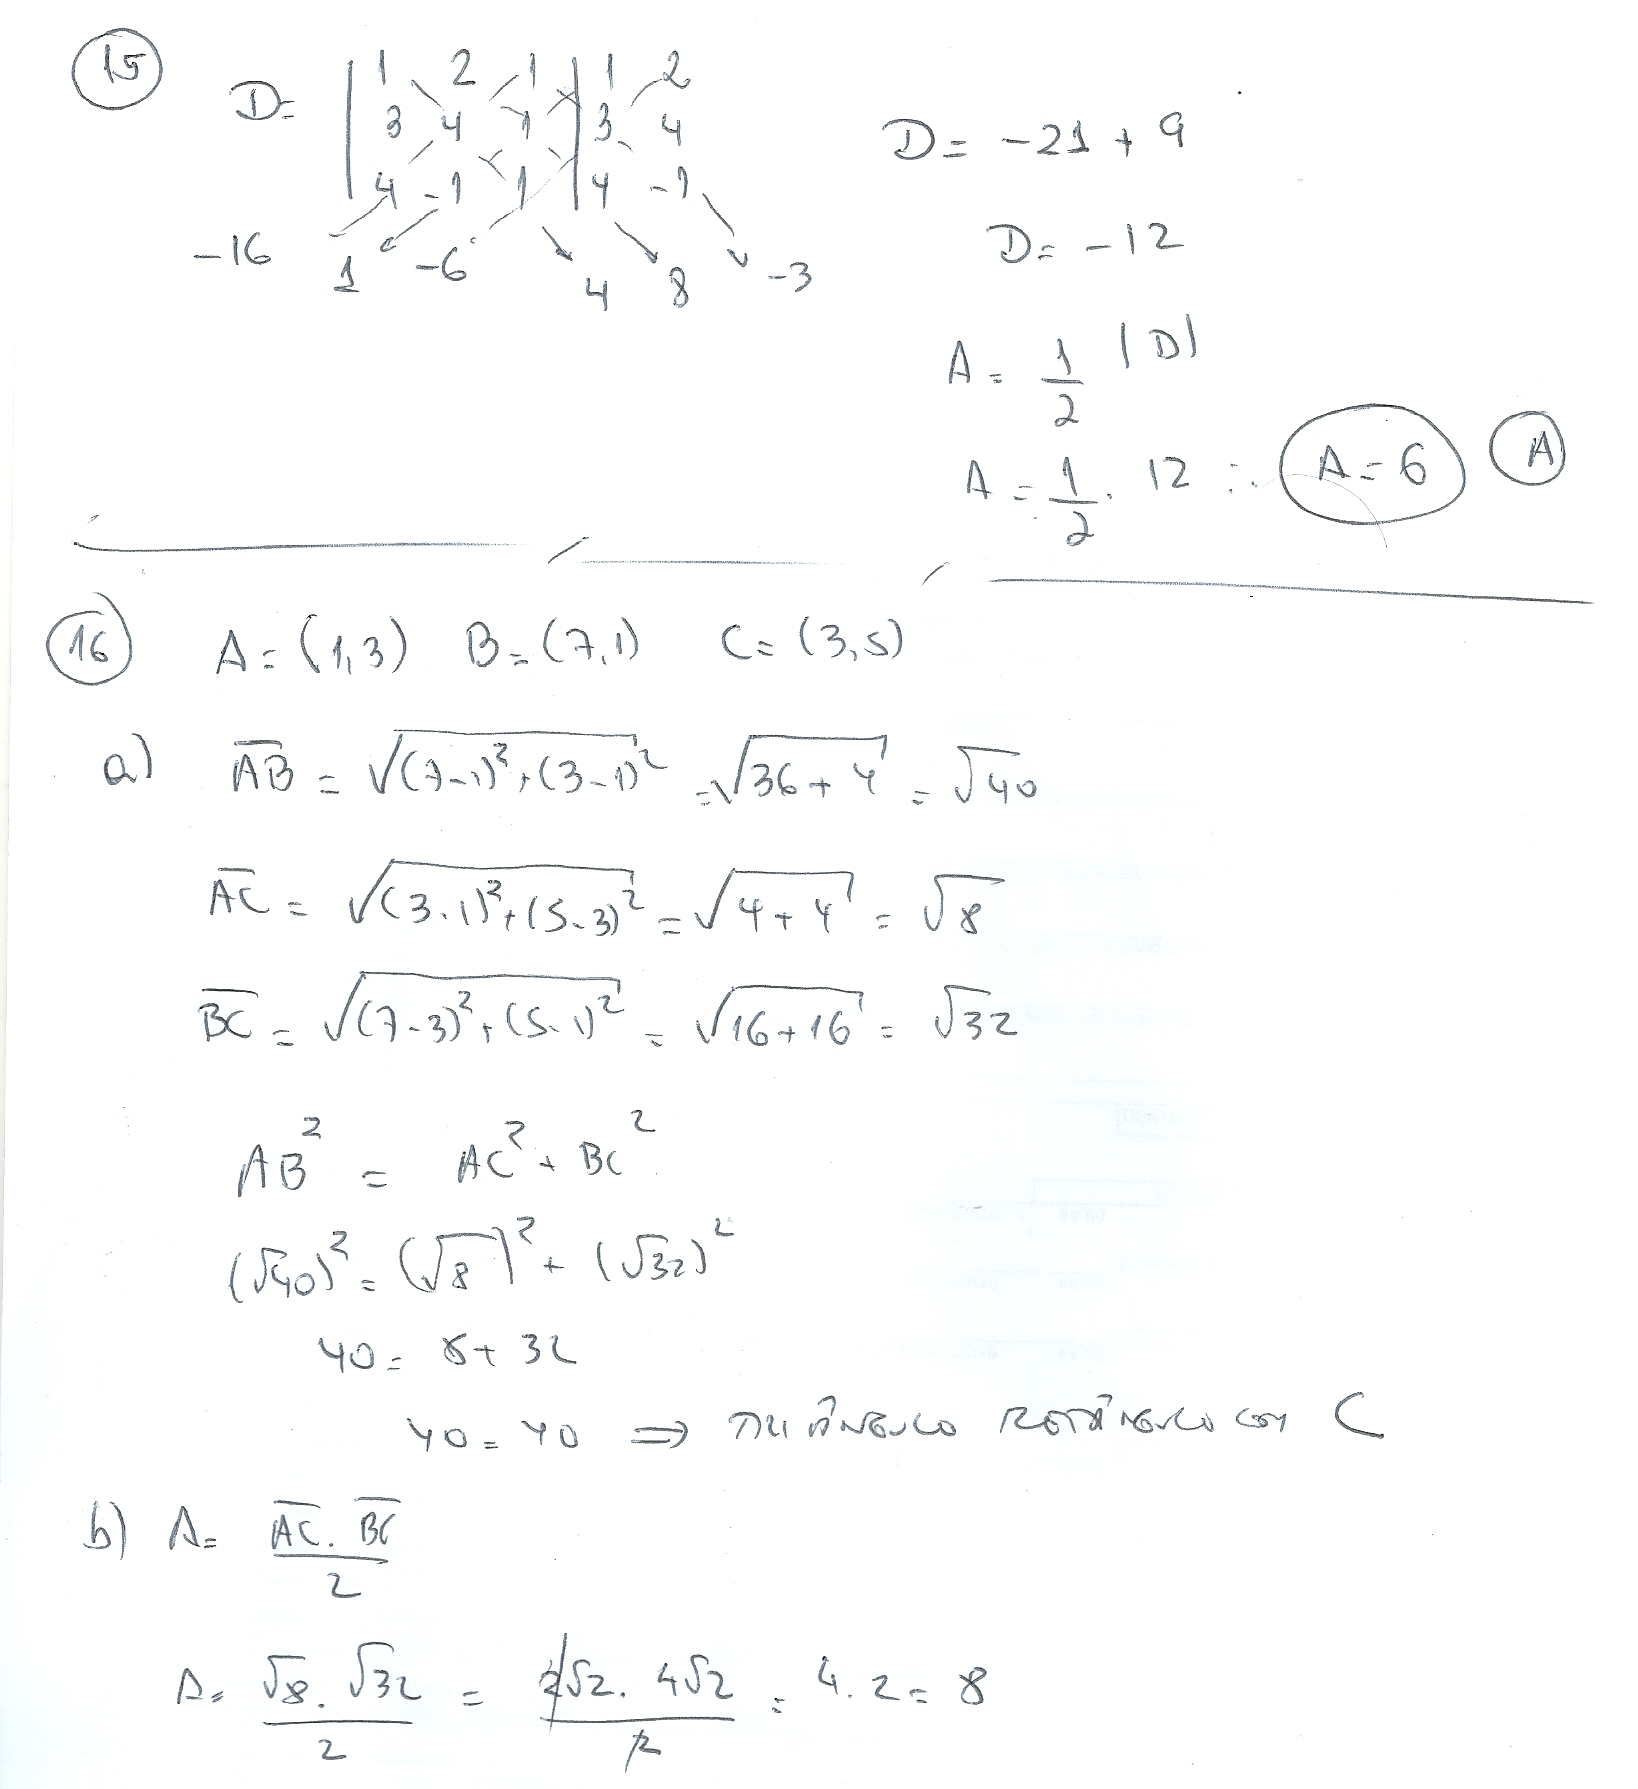 15
D= | 1 2 1 | 1 2
3 4 1 | 3 4
4 -1 1 | 4 -1
-16 1 -6 4 8 -3
D= -21 + 9
D= -12
A= 1/2 |D|
A= 1/2 . 12 ∴ A=6 A
16 A=(1,3) B=(7,1) C=(3,5)
a) AB = √(7-1)²+(3-1)² = √36+4 = √40
AC = √(3-1)²+(5-3)² = √4+4 = √8
BC = √(7-3)²+(5-1)² = √16+16 = √32
AB² = AC² + BC²
(√40)² = (√8)² + (√32)²
40 = 8+32
40 = 40 ⇒ TRIÂNGULO RETÂNGULO COM C
b) A= AC . BC / 2
A= √8 . √32 / 2 = 2√2 . 4√2 / 2 = 4.2 = 8